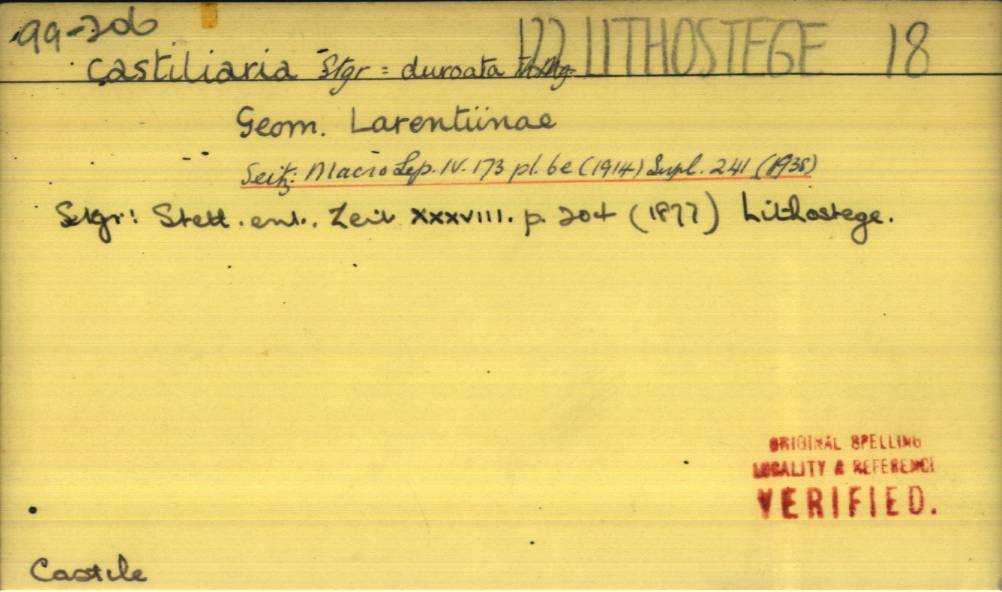 99-206
122 LITHOSTEGE 18
castiliaria Stgr = duroata
Geom. Larentiinae
Seitz: Macro Lep. IV. 173 pl. 6e (1914) Supl. 241 (1938)
Stgr: Stett. ent. Zeit XXXVIII. p. 204 (1877) Lithostege.
ORIGINAL SPELLING
LOCALITY & REFERENCE
VERIFIED.
Castile